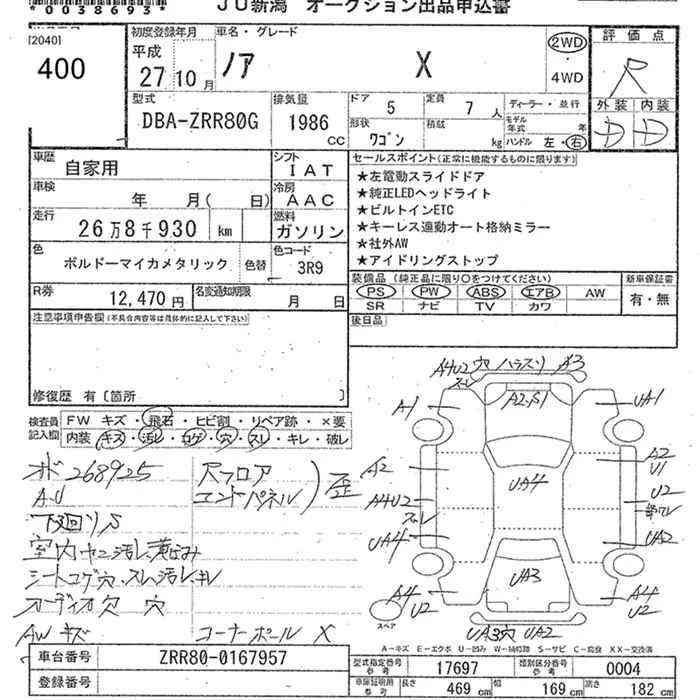 *0038693*
JU新潟 オークション出品申込書
[2040]
400
初度登録年月
平成
27年10月
車名・グレード
ノア X
2WD
・
4WD
評価点
R
外装 内装
D D
型式
DBA-ZRR80G
排気量
1986 cc
ドア 5
定員 7 人
形状 ワゴン
積載 kg
ディーラー・並行
モデル年式 年
ハンドル 左・右
車歴 自家用
シフト IAT
車検 年 月( 日)
冷房 AAC
走行 26万8千930 km
燃料 ガソリン
色 ボルドーマイカメタリック 色替
色コード 3R9
R券 12,470円
名変通知期限 月 日
セールスポイント(正常に機能するものに限ります)
★左電動スライドドア
★純正LEDヘッドライト
★ビルトインETC
★キーレス連動オート格納ミラー
★社外AW
★アイドリングストップ
装備品 (純正品に限り○をつけてください)
PS PW ABS エアB AW
SR ナビ TV カワ
新車保証書
有・無
後日品
注意事項申告欄(不具合内容等は具体的に記入して下さい)
修復歴 有〔箇所 〕
検査員記入欄
FW キズ・飛石・ヒビ割・リペア跡・×要
内装 キズ・汚レ・コゲ・穴・スレ・キレ・破レ
メ 268925
A.U
下廻りS
室内ヤニ汚レ
シートコゲ穴 スレ汚レキレ
オーディオ欠 穴
AWキズ
Rフロア
エンドパネル
歪
コーナーポール X
A4U2 穴 A3
スレ
A1
A2.S1
UA1
A2
A2
U1
UA4
A4U2
スレ
U2
UA4
UA2
UA3
A4
U2
A4
U2
スペア
UA3穴 UA2
A-キズ E-エクボ U-凹み W-補修跡 S-サビ C-腐食 XX-交換済
車台番号 ZRR80-0167957
登録番号
型式指定番号 参考 17697
類別区分番号 参考 0004
車庫証明用 参考 長さ 469 cm 幅 169 cm 高さ 182 cm